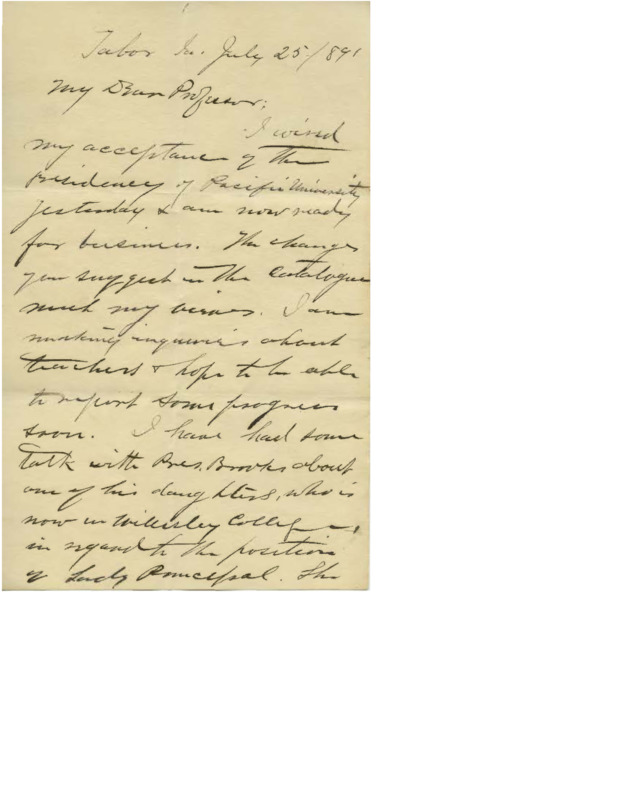 Tabor Ia. July 25/891
My Dear Professor;
I wired
my acceptance of the
presidency of Pacific University
yesterday & am now ready
for business. The changes
you suggest in the Catalogue
meet my views. I am
making inquiries about
teachers & hope to be able
to report some progress
soon. I have had some
talk with Pres. Brooks about
one of his daughters, who is
now in Wellesley College,
in regard to the position
of Lady Principal. She